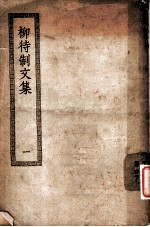 柳待制文集
一